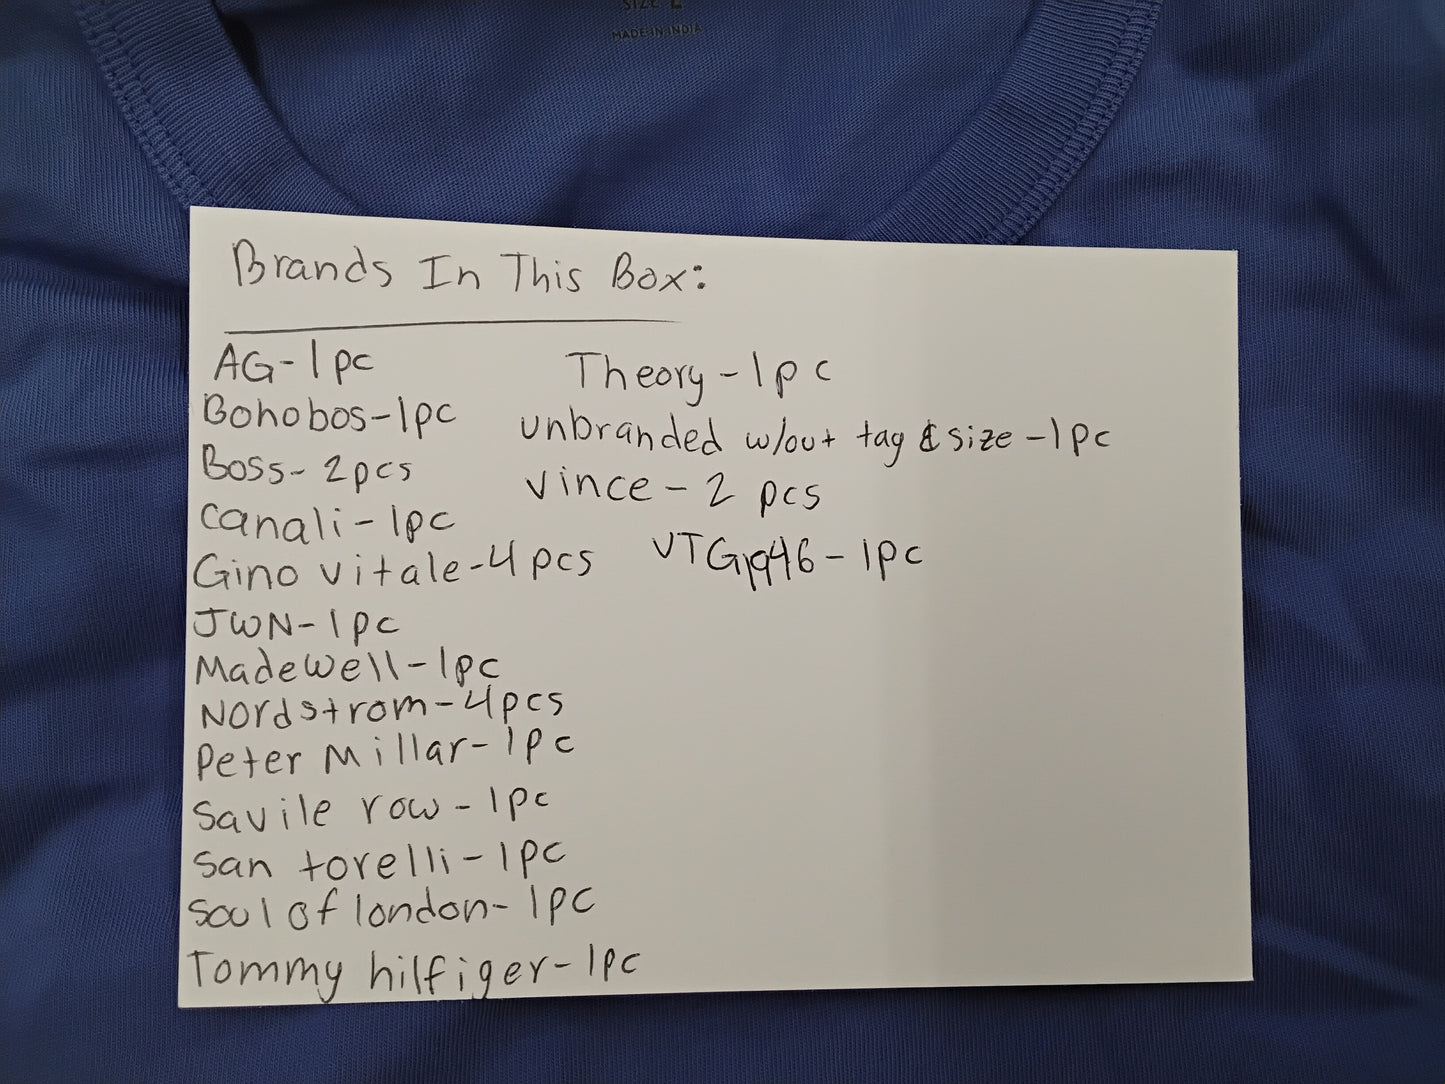 SIZE L
MADE IN INDIA
Brands In This Box:
AG-1pc
Bohobos-1pc
Boss-2pcs
canali-1pc
Gino vitale-4pcs
JWN-1pc
Madewell-1pc
Nordstrom-4pcs
Peter Millar-1pc
Savile row-1pc
San torelli-1pc
Soul of london-1pc
Tommy hilfiger-1pc
Theory-1pc
unbranded w/out tag & size-1pc
vince-2 pcs
VTG1946-1pc